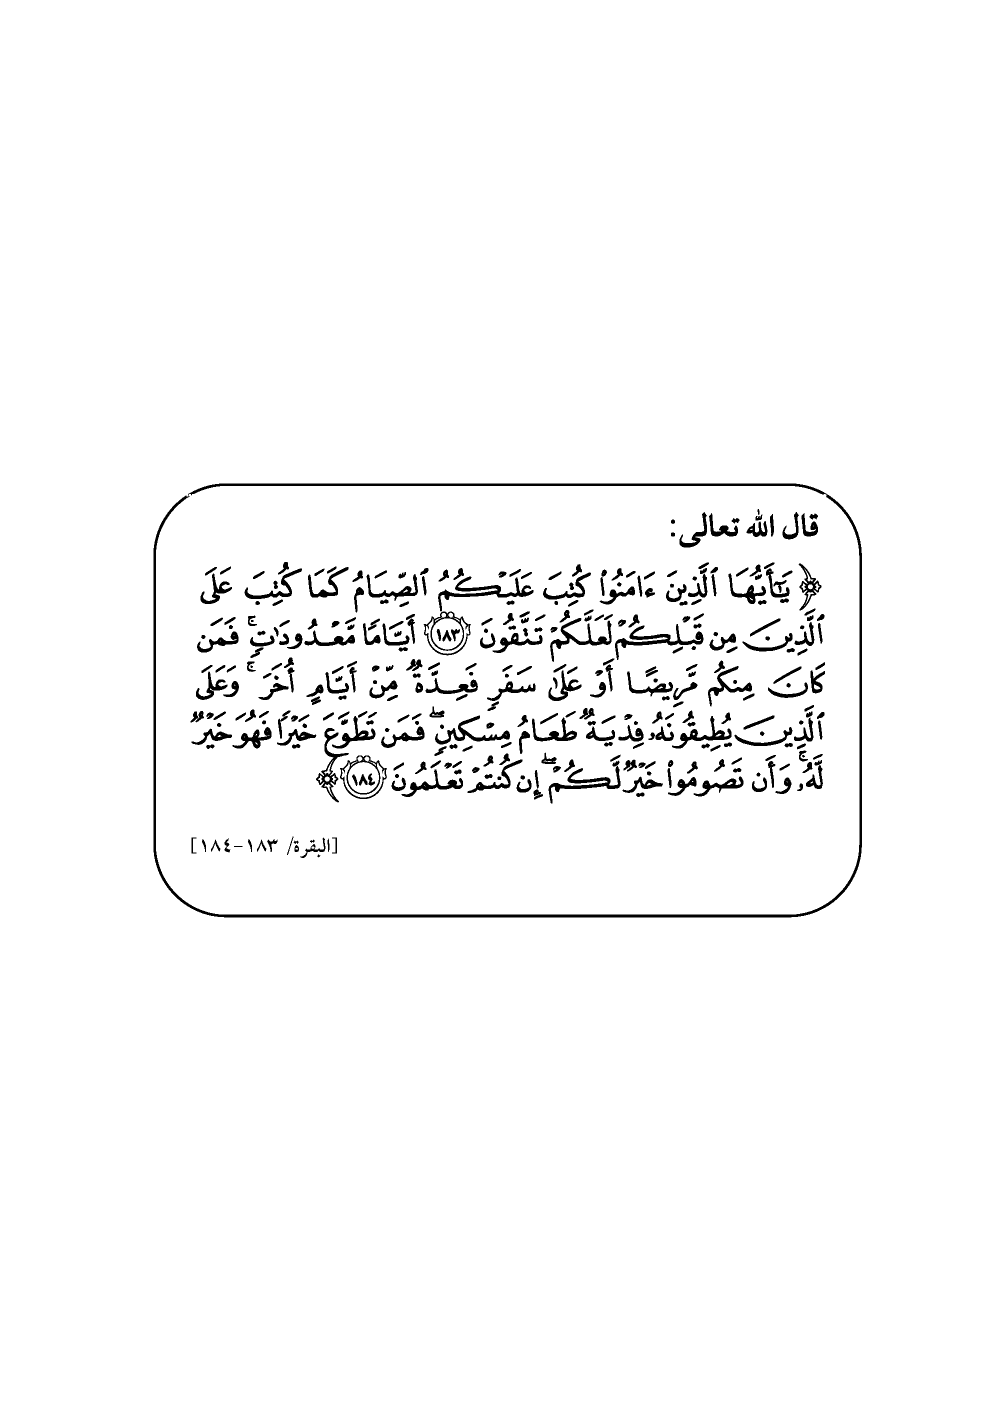 قال الله تعالى:
﴿ يَٰٓأَيُّهَا ٱلَّذِينَ ءَامَنُوا۟ كُتِبَ عَلَيْكُمُ ٱلصِّيَامُ كَمَا كُتِبَ عَلَى
ٱلَّذِينَ مِن قَبْلِكُمْ لَعَلَّكُمْ تَتَّقُونَ ١٨٣ أَيَّامًا مَّعْدُودَٰتٍۚ فَمَن
كَانَ مِنكُم مَّرِيضًا أَوْ عَلَىٰ سَفَرٍ فَعِدَّةٌ مِّنْ أَيَّامٍ أُخَرَۚ وَعَلَى
ٱلَّذِينَ يُطِيقُونَهُۥ فِدْيَةٌ طَعَامُ مِسْكِينٍۖ فَمَن تَطَوَّعَ خَيْرًا فَهُوَ خَيْرٌ
لَّهُۥۚ وَأَن تَصُومُوا۟ خَيْرٌ لَّكُمْۖ إِن كُنتُمْ تَعْلَمُونَ ١٨٤ ﴾
[البقرة/ ١٨٣-١٨٤]